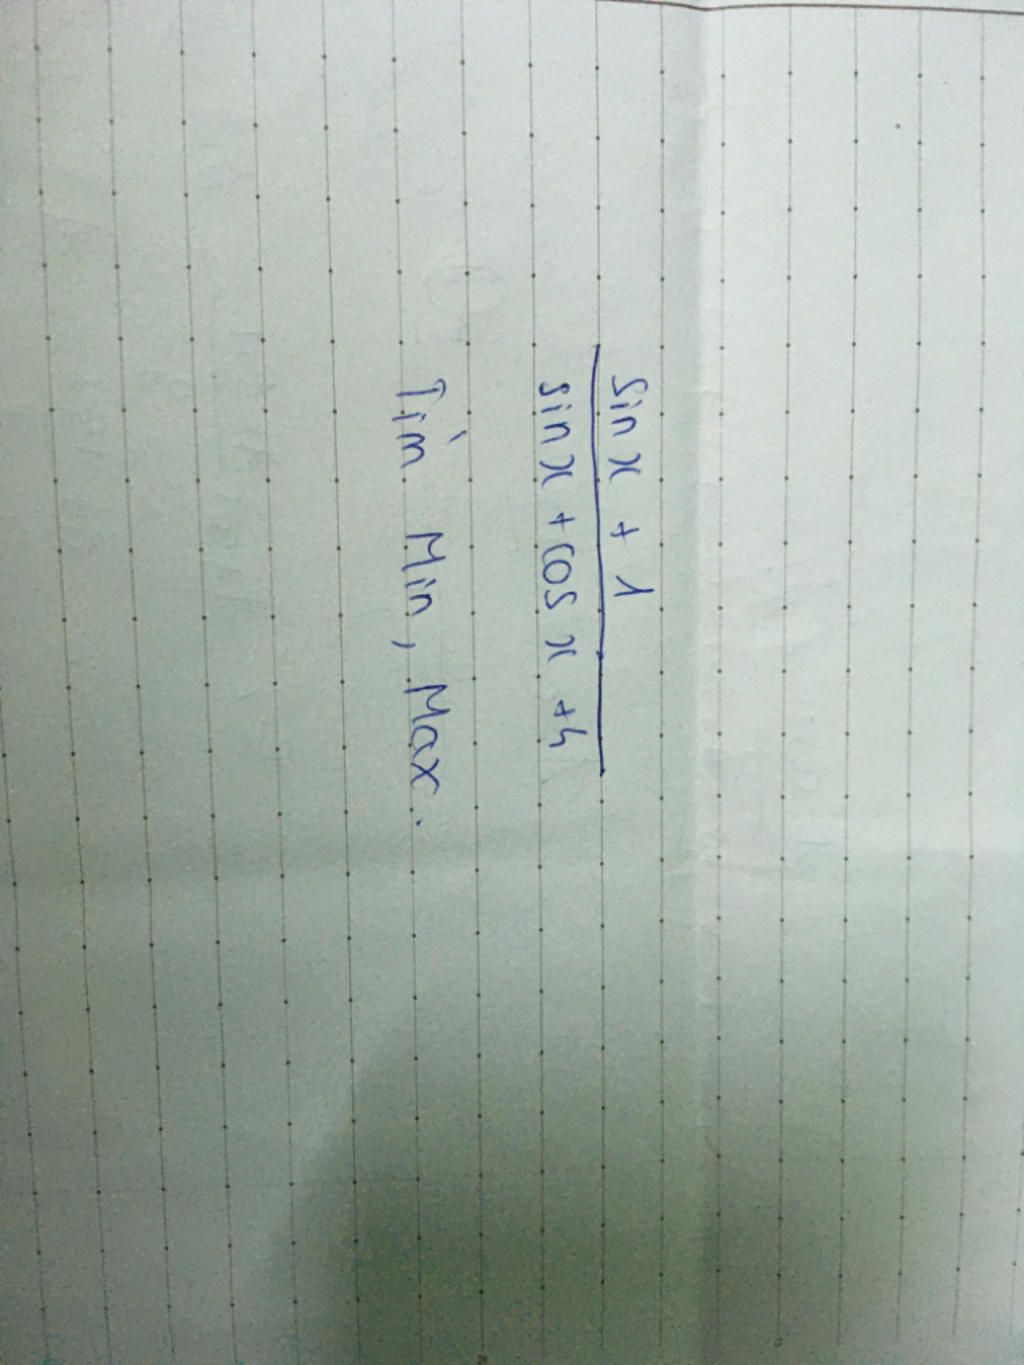 sin x + 1
sin x + cos x + 4
Tìm Min, Max.